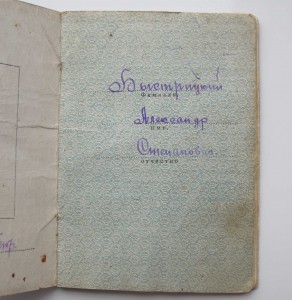 Быстрицкий
фамилия
Александр
имя
Степанович
отчество